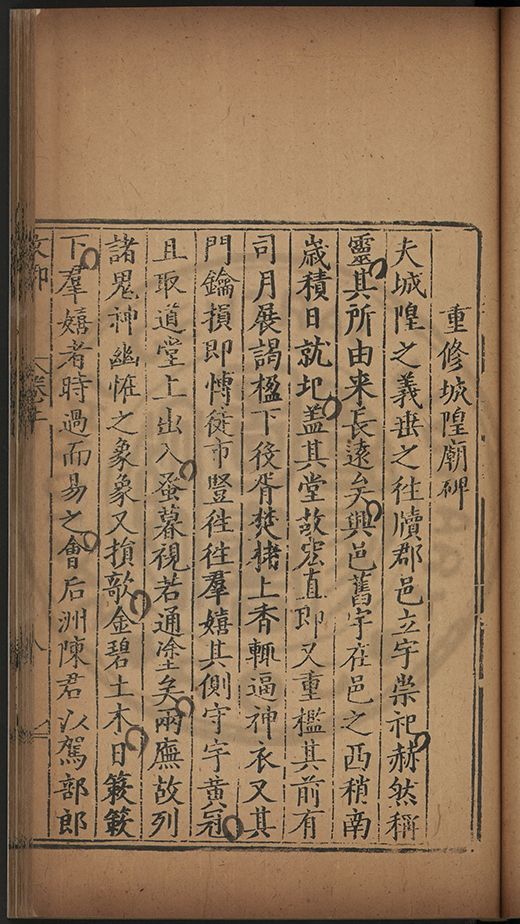 重修城隍廟碑
夫城隍之義垂之徃牘郡邑立宇崇祀赫然稱
靈其所由来長遠矣興邑舊宇在邑之西稍南
歳積日就圮蓋其堂故宏直即又重檻其前有
司月展謁楹下後胥焚捿上香輒逼神衣又其
門鑰損即慱徒市豎徃徃羣嬉其側守宇黄冠
且取道堂上出入蚤暮視若通塗矣兩廡故列
諸鬼神幽恠之象象又損欹金碧土木日簌簌
下羣嬉者時過而易之會后洲陳君以駕部郎